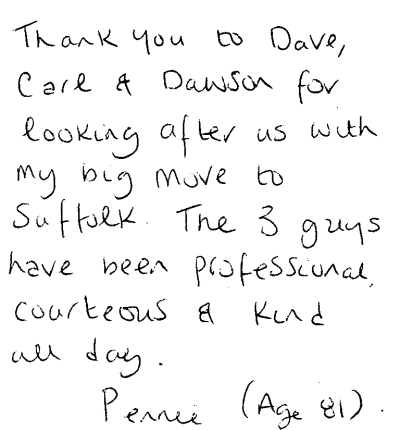 Thank you to Dave,
Carl & Dawson for
looking after us with
my big move to
Suffolk. The 3 guys
have been professional,
courteous & kind
all day.
Pennie (Age 81).